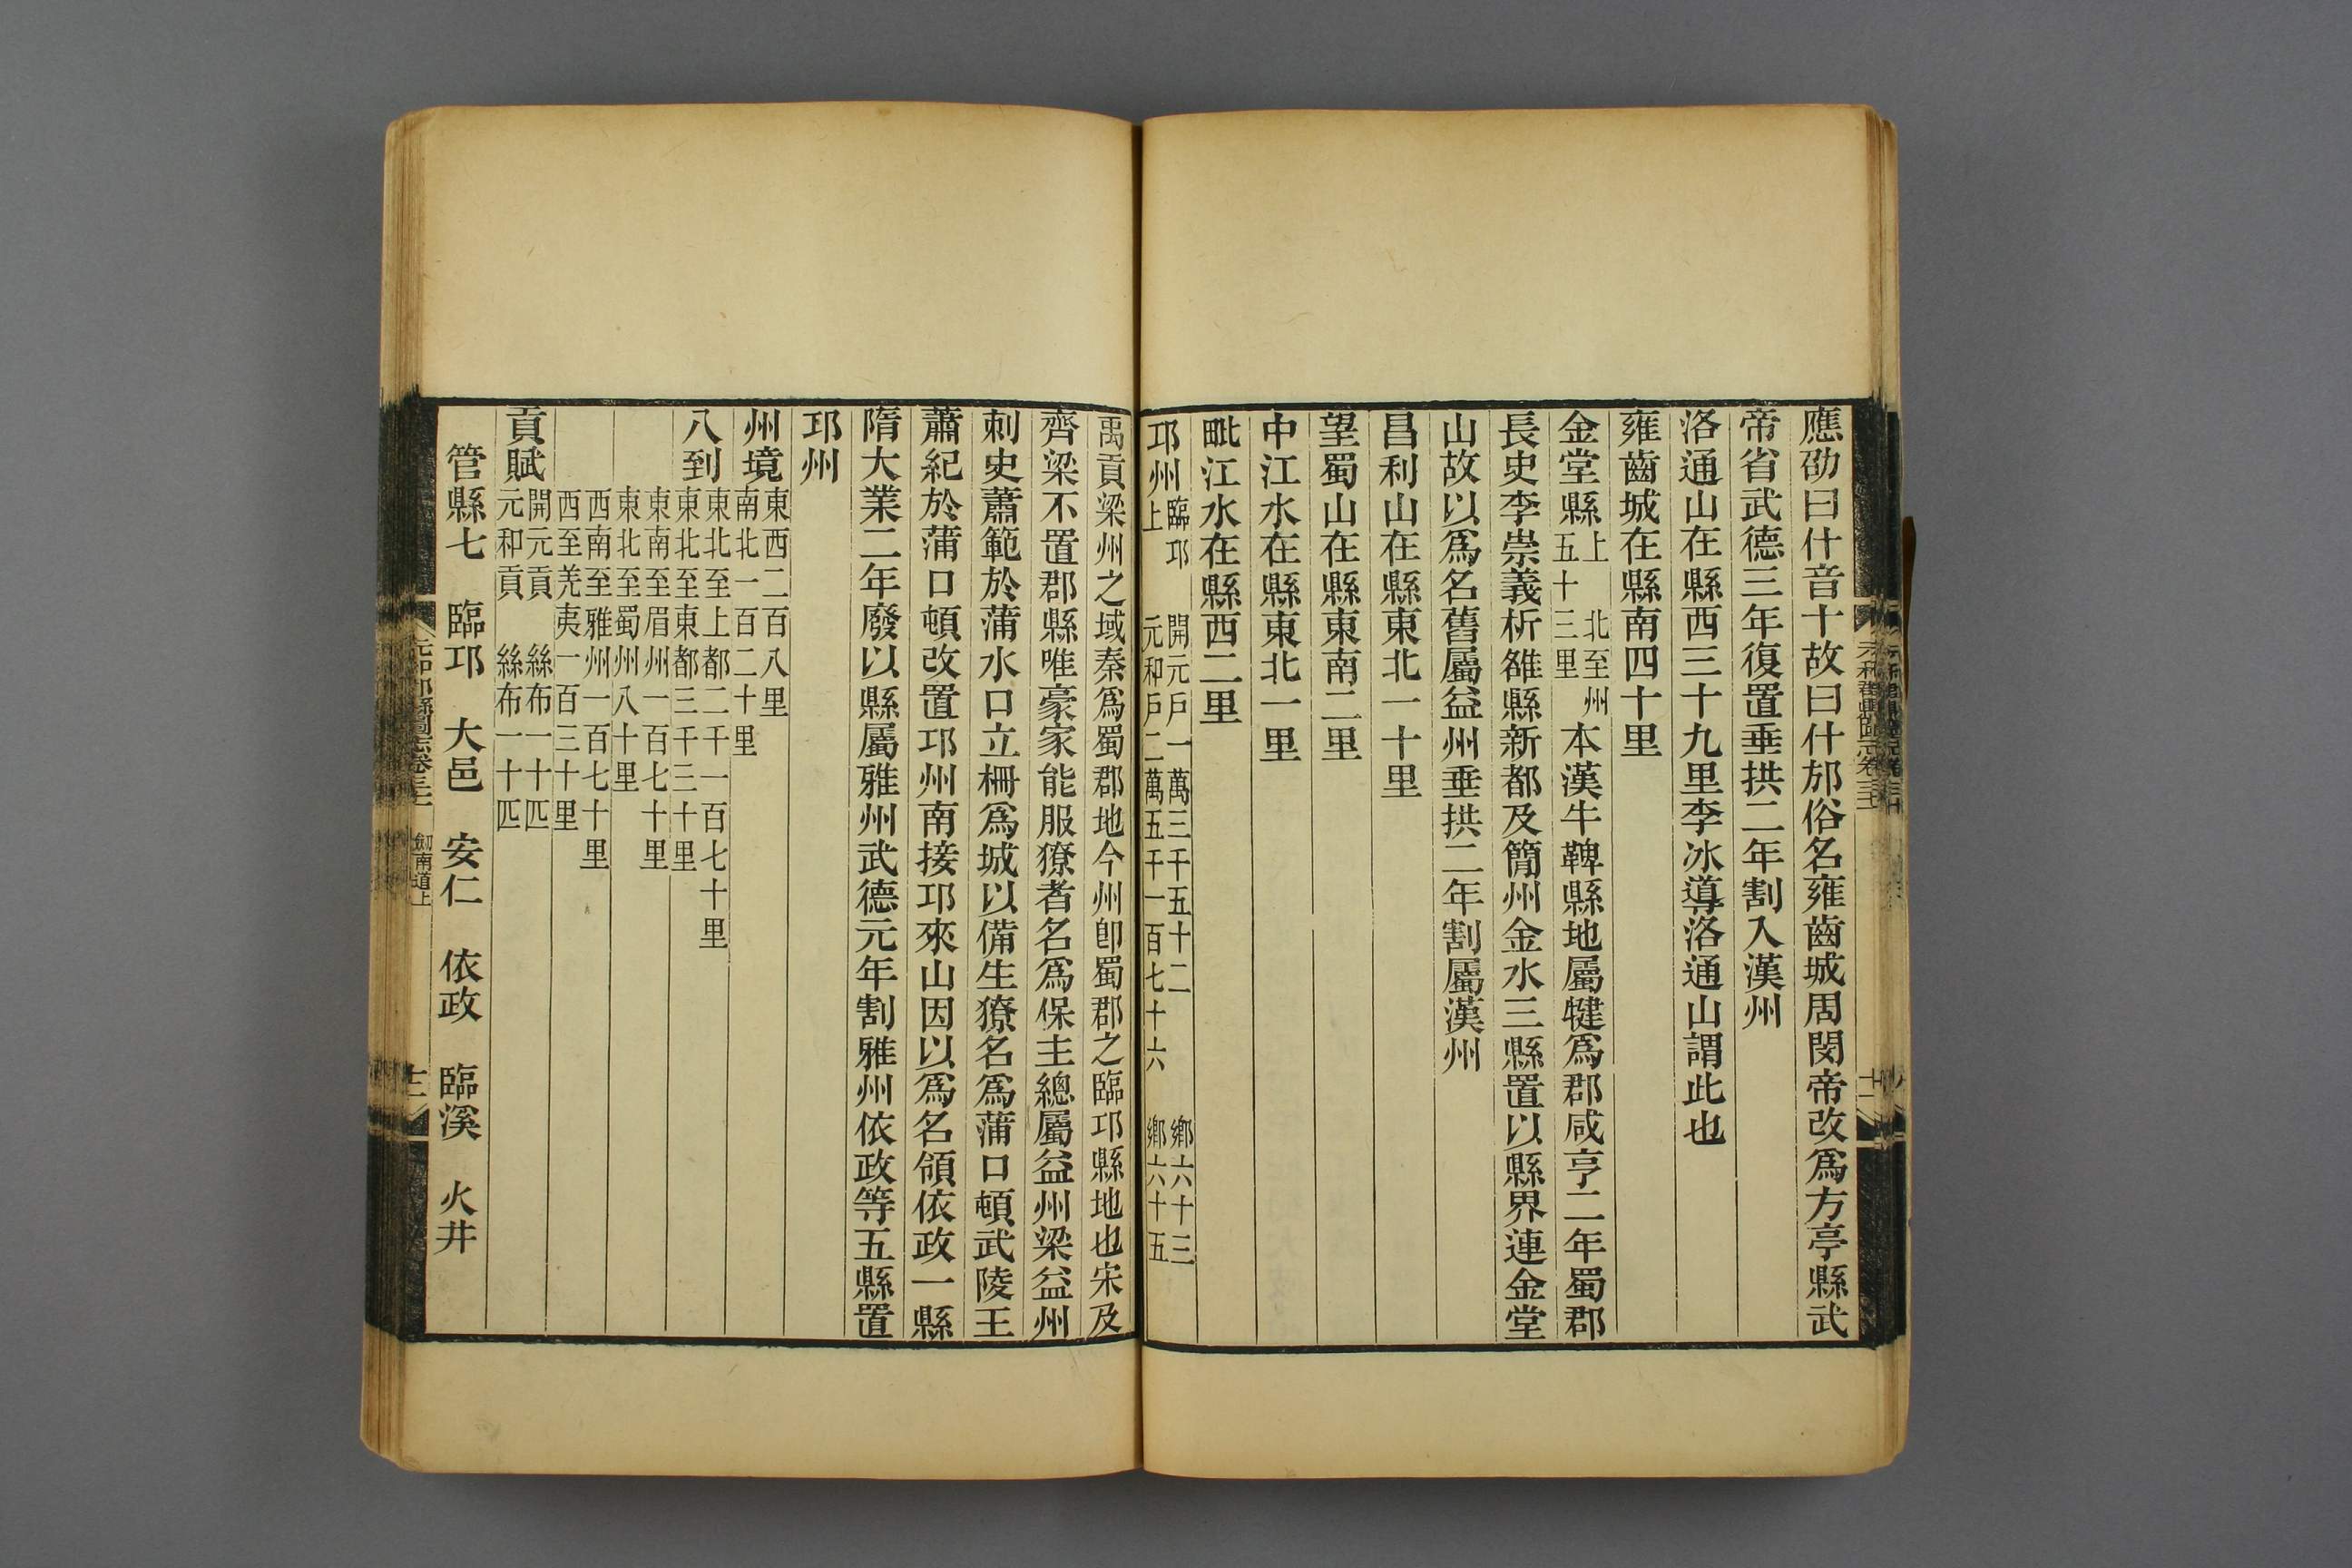 應劭曰什音十故曰什邡俗名雍齒城周閔帝改爲方亭縣武
帝省武德三年復置垂拱二年割入漢州
洛通山在縣西三十九里李冰導洛通山謂此也
雍齒城在縣南四十里
金堂縣上 北至州五十三里 本漢牛鞞縣地屬犍爲郡咸亨二年蜀郡
長史李崇義析雒縣新都及簡州金水三縣置以縣界連金堂
山故以爲名舊屬益州垂拱二年割屬漢州
昌利山在縣東北一十里
望蜀山在縣東南二里
中江水在縣東北一里
毗江水在縣西二里
邛州 臨邛上 開元戶一萬三千五十二 鄉六十三
元和戶二萬五千一百七十六 鄉六十五
禹貢梁州之域秦爲蜀郡地今州卽蜀郡之臨邛縣地也宋及
齊梁不置郡縣唯豪家能服獠者名爲保主總屬益州梁益州
刺史蕭範於蒲水口立柵爲城以備生獠名爲蒲口頓武陵王
蕭紀於蒲口頓改置邛州南接邛來山因以爲名領依政一縣
隋大業二年廢以縣屬雅州武德元年割雅州依政等五縣置
邛州
州境 東西二百八里
南北一百二十里
八到 東北至上都二千一百七十里
東北至東都三千三十里
東南至眉州一百七十里
東北至蜀州八十里
西南至雅州一百七十里
西至羌夷一百三十里
貢賦 開元貢 絲布一十匹
元和貢 絲布一十匹
管縣七 臨邛 大邑 安仁 依政 臨溪 火井
元和郡縣圖志卷三十一 劍南道上 十二